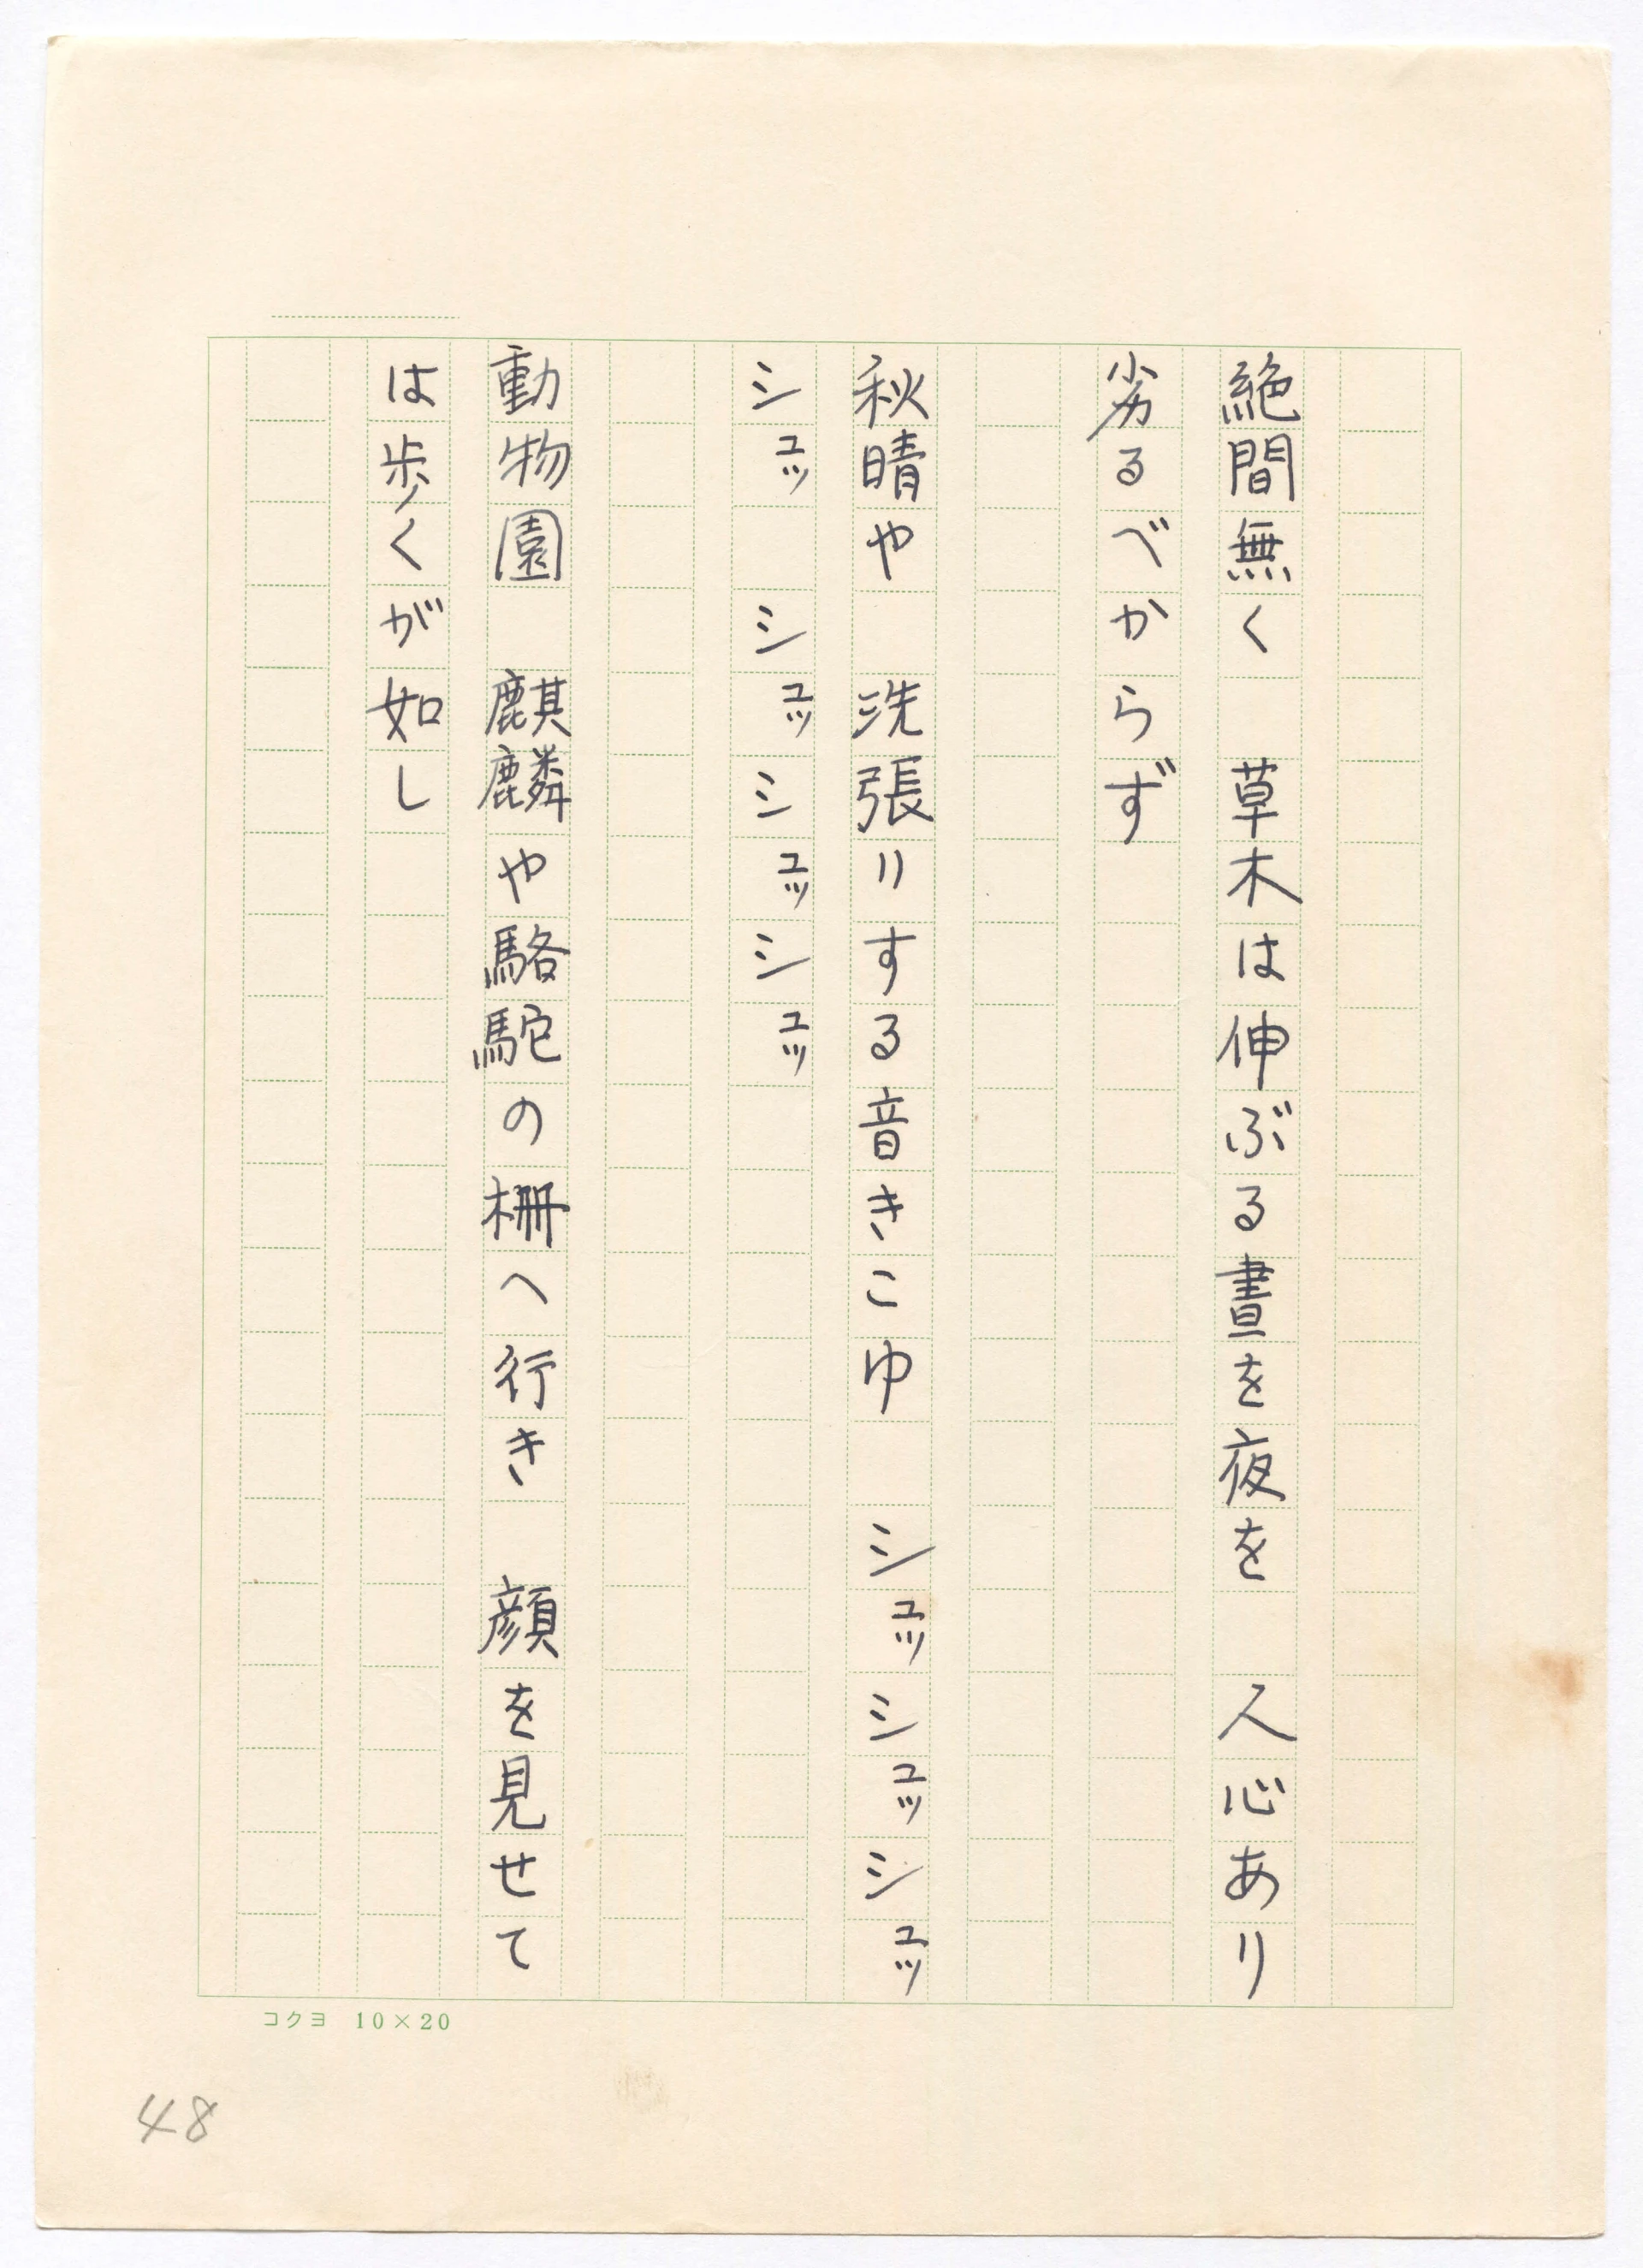 絶間無く　草木は伸ぶる晝を夜を　人心あり
劣るべからず
秋晴や　洗張りする音きこゆ　シュッシュッシュッ
シュッ　シュッシュッシュッ
動物園　麒麟や駱駝の柵へ行き　顔を見せて
は歩くが如し
コクヨ 10×20
48